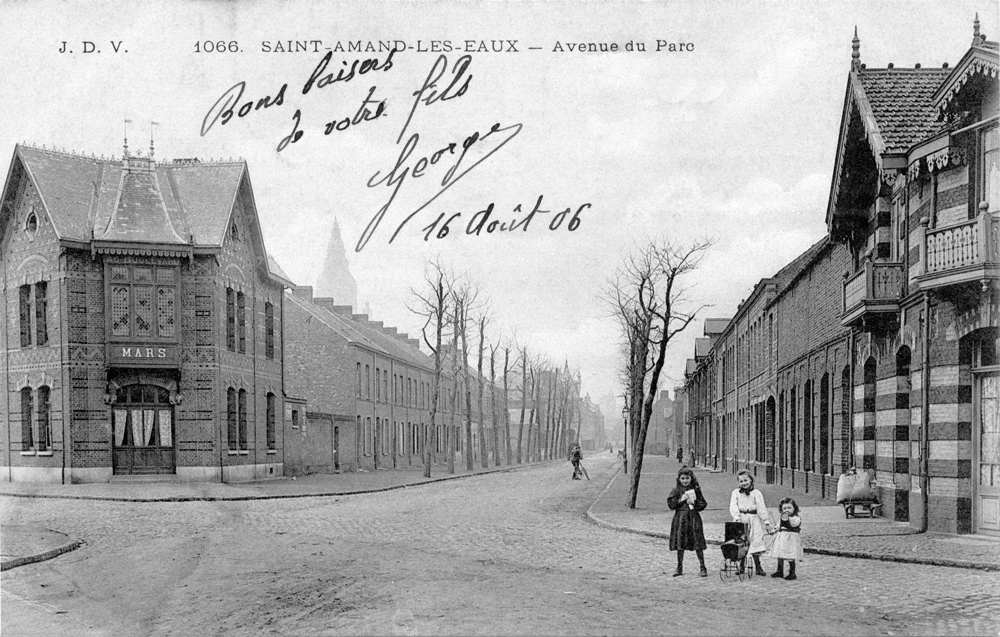 J. D. V. 1066. SAINT-AMAND-LES-EAUX — Avenue du Parc
Bons baisers
de votre fils
George
16 Août 06
MARS